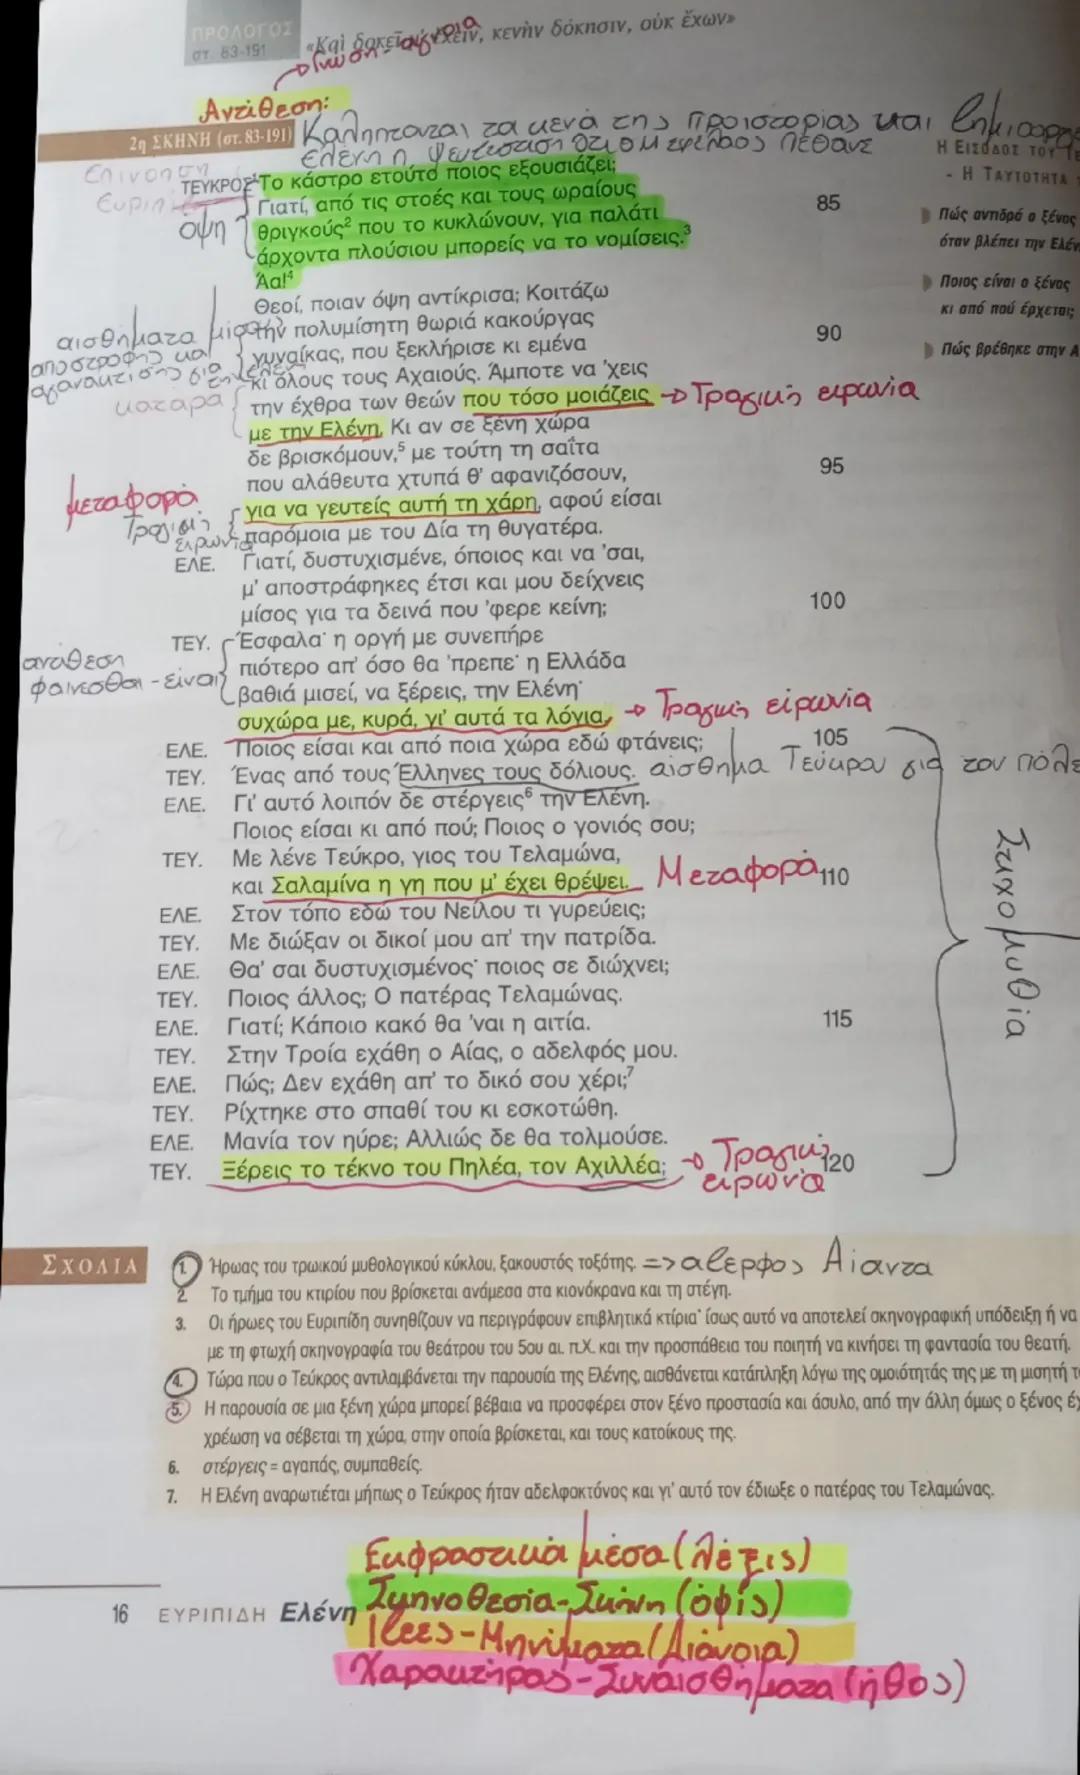 ΠΡΟΛΟΓΟΣ
στ. 83-191
«Καὶ δοκεῖ μ' ἔχειν, κενὴν δόκησιν, οὐκ ἔχων»
Γνώση - άγνοια
Αντίθεση:
2η ΣΚΗΝΗ (στ. 83-191)
Καλύπτονται τα κενά της προιστορίας και
Ελένη η ψευταίσθηση ότι ο Μενέλαος πέθανε
Η ΕΙΣΟΔΟΣ ΤΟΥ ΤΕ
- Η ΤΑΥΤΟΤΗΤΑ
Επινόηση
ΤΕΥΚΡΟΣ¹ Το κάστρο ετούτο ποιος εξουσιάζει;
Γιατί, από τις στοές και τους ωραίους 85
όψη
θριγκούς² που το κυκλώνουν, για παλάτι
άρχοντα πλούσιου μπορείς να το νομίσεις.³
Άα!⁴
Πώς αντιδρά ο ξένος
όταν βλέπει την Ελέν
Ποιος είναι ο ξένος
κι από πού έρχεται;
Πώς βρέθηκε στην Α
Θεοί, ποιαν όψη αντίκρισα; Κοιτάζω
αισθήματα μίσους
την πολυμίσητη θωριά κακούργας 90
αποστροφής και
γυναίκας, που ξεκλήρισε κι εμένα
αγανάκτισης για την Ελένη
κι όλους τους Αχαιούς. Άμποτε να 'χεις
κατάρα
την έχθρα των θεών που τόσο μοιάζεις → Τραγική ειρωνία
με την Ελένη. Κι αν σε ξένη χώρα
δε βρισκόμουν,⁵ με τούτη τη σαΐτα 95
που αλάθευτα χτυπά θ' αφανιζόσουν,
μεταφορά
για να γευτείς αυτή τη χάρη, αφού είσαι
Τραγική ειρωνία
παρόμοια με του Δία τη θυγατέρα.
ΕΛΕ. Γιατί, δυστυχισμένε, όποιος και να 'σαι,
μ' αποστράφηκες έτσι και μου δείχνεις
μίσος για τα δεινά που 'φερε κείνη; 100
ΤΕΥ. Έσφαλα· η οργή με συνεπήρε
αντίθεση
πιότερο απ' όσο θα 'πρεπε· η Ελλάδα
φαίνεσθαι - είναι
βαθιά μισεί, να ξέρεις, την Ελένη·
συχώρα με, κυρά, γι' αυτά τα λόγια. → Τραγική είρωνία
ΕΛΕ. Ποιος είσαι και από ποια χώρα εδώ φτάνεις; 105
ΤΕΥ. Ένας από τους Έλληνες τους δόλιους. αίσθημα Τεύκρου για τον πόλε
ΕΛΕ. Γι' αυτό λοιπόν δε στέργεις⁶ την Ελένη.
Ποιος είσαι κι από πού; Ποιος ο γονιός σου;
ΤΕΥ. Με λένε Τεύκρο, γιος του Τελαμώνα,
και Σαλαμίνα η γη που μ' έχει θρέψει. Μεταφορά 110
ΕΛΕ. Στον τόπο εδώ του Νείλου τι γυρεύεις;
ΤΕΥ. Με διώξαν οι δικοί μου απ' την πατρίδα.
ΕΛΕ. Θα' σαι δυστυχισμένος· ποιος σε διώχνει;
ΤΕΥ. Ποιος άλλος; Ο πατέρας Τελαμώνας.
ΕΛΕ. Γιατί; Κάποιο κακό θα 'ναι η αιτία. 115
ΤΕΥ. Στην Τροία εχάθη ο Αίας, ο αδελφός μου.
ΕΛΕ. Πώς; Δεν εχάθη απ' το δικό σου χέρι;⁷
ΤΕΥ. Ρίχτηκε στο σπαθί του κι εσκοτώθη.
ΕΛΕ. Μανία τον ηύρε; Αλλιώς δε θα τολμούσε.
ΤΕΥ. Ξέρεις το τέκνο του Πηλέα, τον Αχιλλέα; → Τραγική ειρωνία 120
Στιχομυθία
ΣΧΟΛΙΑ
1. Ήρωας του τρωικού μυθολογικού κύκλου, ξακουστός τοξότης. => αδερφος Αίαντα
2. Το τμήμα του κτιρίου που βρίσκεται ανάμεσα στα κιονόκρανα και τη στέγη.
3. Οι ήρωες του Ευριπίδη συνηθίζουν να περιγράφουν επιβλητικά κτίρια· ίσως αυτό να αποτελεί σκηνογραφική υπόδειξη ή να
με τη φτωχή σκηνογραφία του θεάτρου του 5ου αι. π.Χ. και την προσπάθεια του ποιητή να κινήσει τη φαντασία του θεατή.
4. Τώρα που ο Τεύκρος αντιλαμβάνεται την παρουσία της Ελένης, αισθάνεται κατάπληξη λόγω της ομοιότητάς της με τη μισητή τ
5. Η παρουσία σε μια ξένη χώρα μπορεί βέβαια να προσφέρει στον ξένο προστασία και άσυλο, από την άλλη όμως ο ξένος έχ
χρέωση να σέβεται τη χώρα, στην οποία βρίσκεται, και τους κατοίκους της.
6. στέργεις = αγαπάς, συμπαθείς.
7. Η Ελένη αναρωτιέται μήπως ο Τεύκρος ήταν αδελφοκτόνος και γι' αυτό τον έδιωξε ο πατέρας του Τελαμώνας.
Εκφραστικά μέσα (λέξις)
Σκηνοθεσία-Σκήνη (όψίς)
Ιδέες-Μηνύματα (Διάνοια)
Χαρακτήρας-Συναισθήματα (ήθος)
16 ΕΥΡΙΠΙΔΗ Ελένη